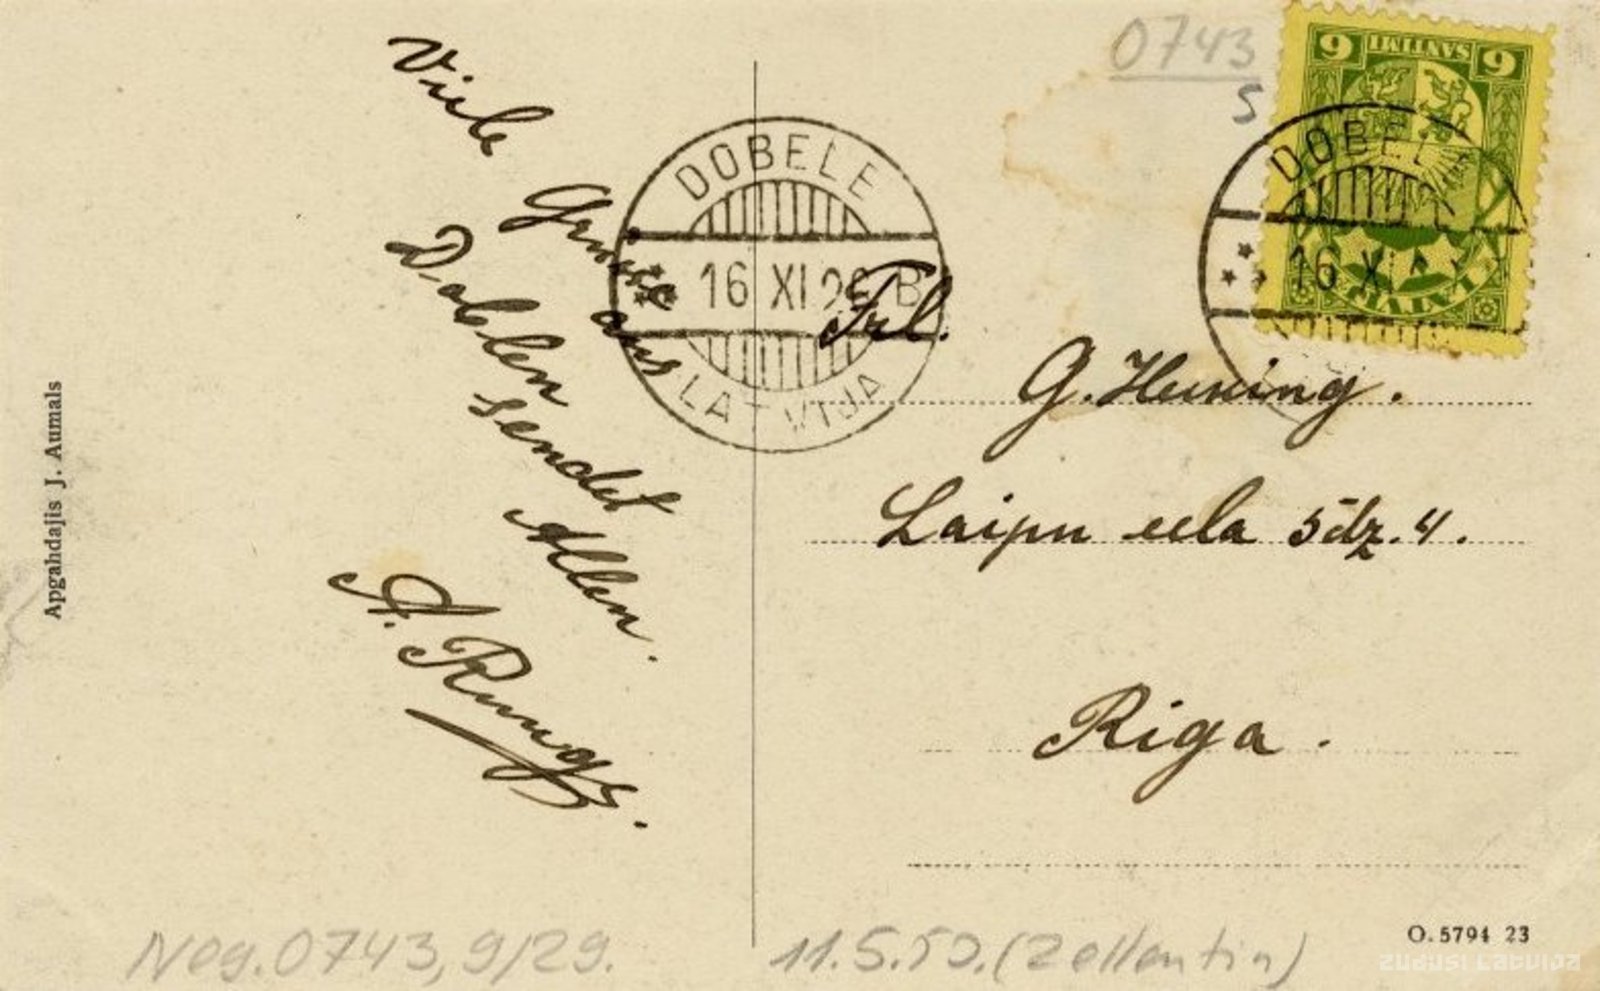 Viele
Grüsse aus
Doblen
sendet
Allen.
A. Rungs.
Apgahdajis J. Aumals
DOBELE
16 XI 26 B
LATVIJA
0743
5
6 SANTIMI 6
LATVIJA
DOBELE
16 XI
Frl.
G. Henning.
Laipu eela 5 dz. 4.
Riga.
O. 5794 23
Neg. 0743, 9/29.
11.5.50. (Zellentin)
zudusi latvija